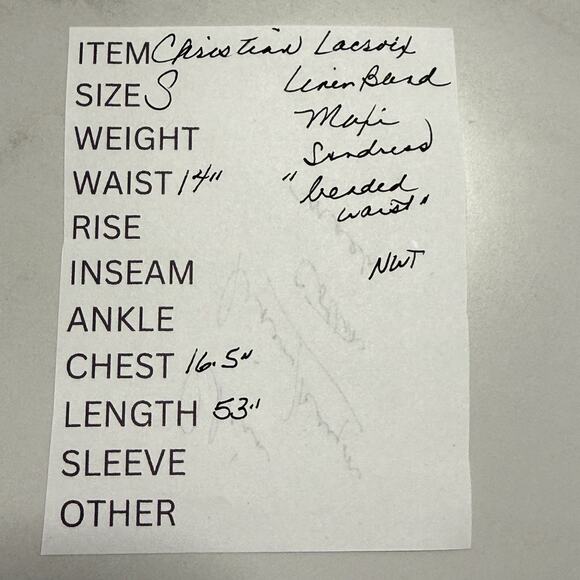 ITEM Christian Lacroix
SIZE S Linen Bend
WEIGHT Maxi
Sundress
WAIST 14" "beaded
waist"
RISE
INSEAM NWT
ANKLE
CHEST 16.5"
LENGTH 53"
SLEEVE
OTHER